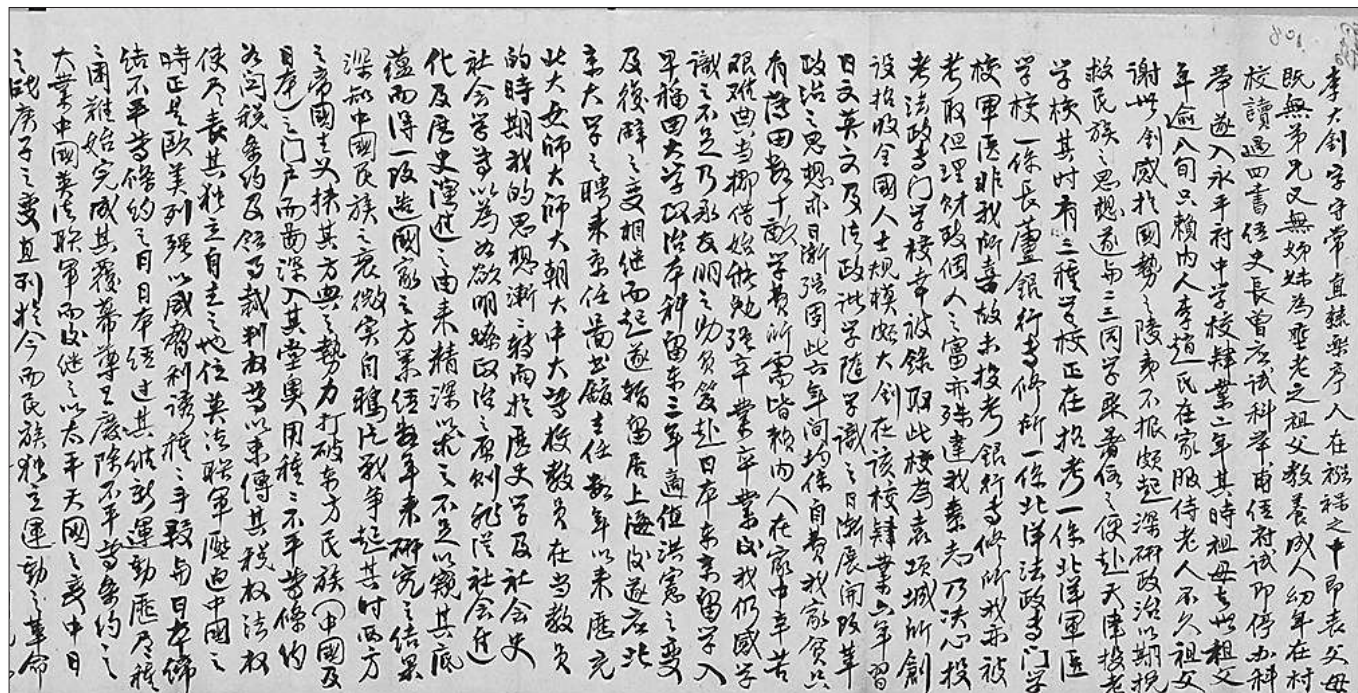 李大釗字守常直隸樂亭人在襁褓之中即丧父母
既無弟兄又無姊妹為垂老之祖父教養成人幼年在村
校讀過四書经史長曾应試科举甫经府試即停办科
举遂入永平府中学校肄業二年其時祖母去世祖父
年逾八旬只賴内人李趙氏在家服侍老人不久祖父
謝世釗感於國勢之陵夷不振頗起深研政治以期挽
救民族之思想遂与二三同学乘暑假之便赴天津投考
学校其时有三種学校正在招考一係北洋軍医
学校一係長蘆銀行専修所一係北洋法政専门学
校軍医非我所喜故未投考銀行専修所我亦被
考取但理财致個人之富亦殊違我素志乃决心投
考法政専门学校幸被錄取此校為袁項城所創
設招收全國人士規模頗大釗在該校肄業六年習
日文英文及法政諸学随学識之日漸展開改革
政治之思想亦日漸强固此六年间均係自費我家貧只
有薄田数十畝学費所需皆賴内人在家中辛苦
艰难典当挪借始能勉强卒業卒業後我仍感学
識之不足乃承友朋之助負笈赴日本东京留学入
早稲田大学政治本科留东三年適值洪憲之變
及復辟之變相继而起遂輟留居上海後遂应北
京大学之聘来京任圖书館主任数年以来歷充
北大女師大師大朝大中大等校教员在当教员
的時期我的思想漸々轉而於歷史学及社会史
社会学等以為如欲明瞭政治之原则非從社会進
化及歷史演進之由来精深以求之不足以窥其底
蕴而得一改造國家之方案经数年来研究之结果
深知中國民族之衰微实自鸦片战争起其时西方
之帝國主义挟其方兴之勢力打破东方民族(中國及
日本)之门户而圖深入其堂奥用種々不平等條約
如闰税条约及领事裁判权等以束縛其税权法权
使尽丧其独立自主之地位英法联軍壓迫中國之
時正是欧美列强以威脅利誘種々手段与日本缔
结不平等條約之日日本经过其维新運動歷尽種
之困難始完成其覆幕尊王廢除不平等条约之
大業中國英法联軍而後继之以太平天國之变中日
之战庚子之变直到於今而民族独立運動之革命